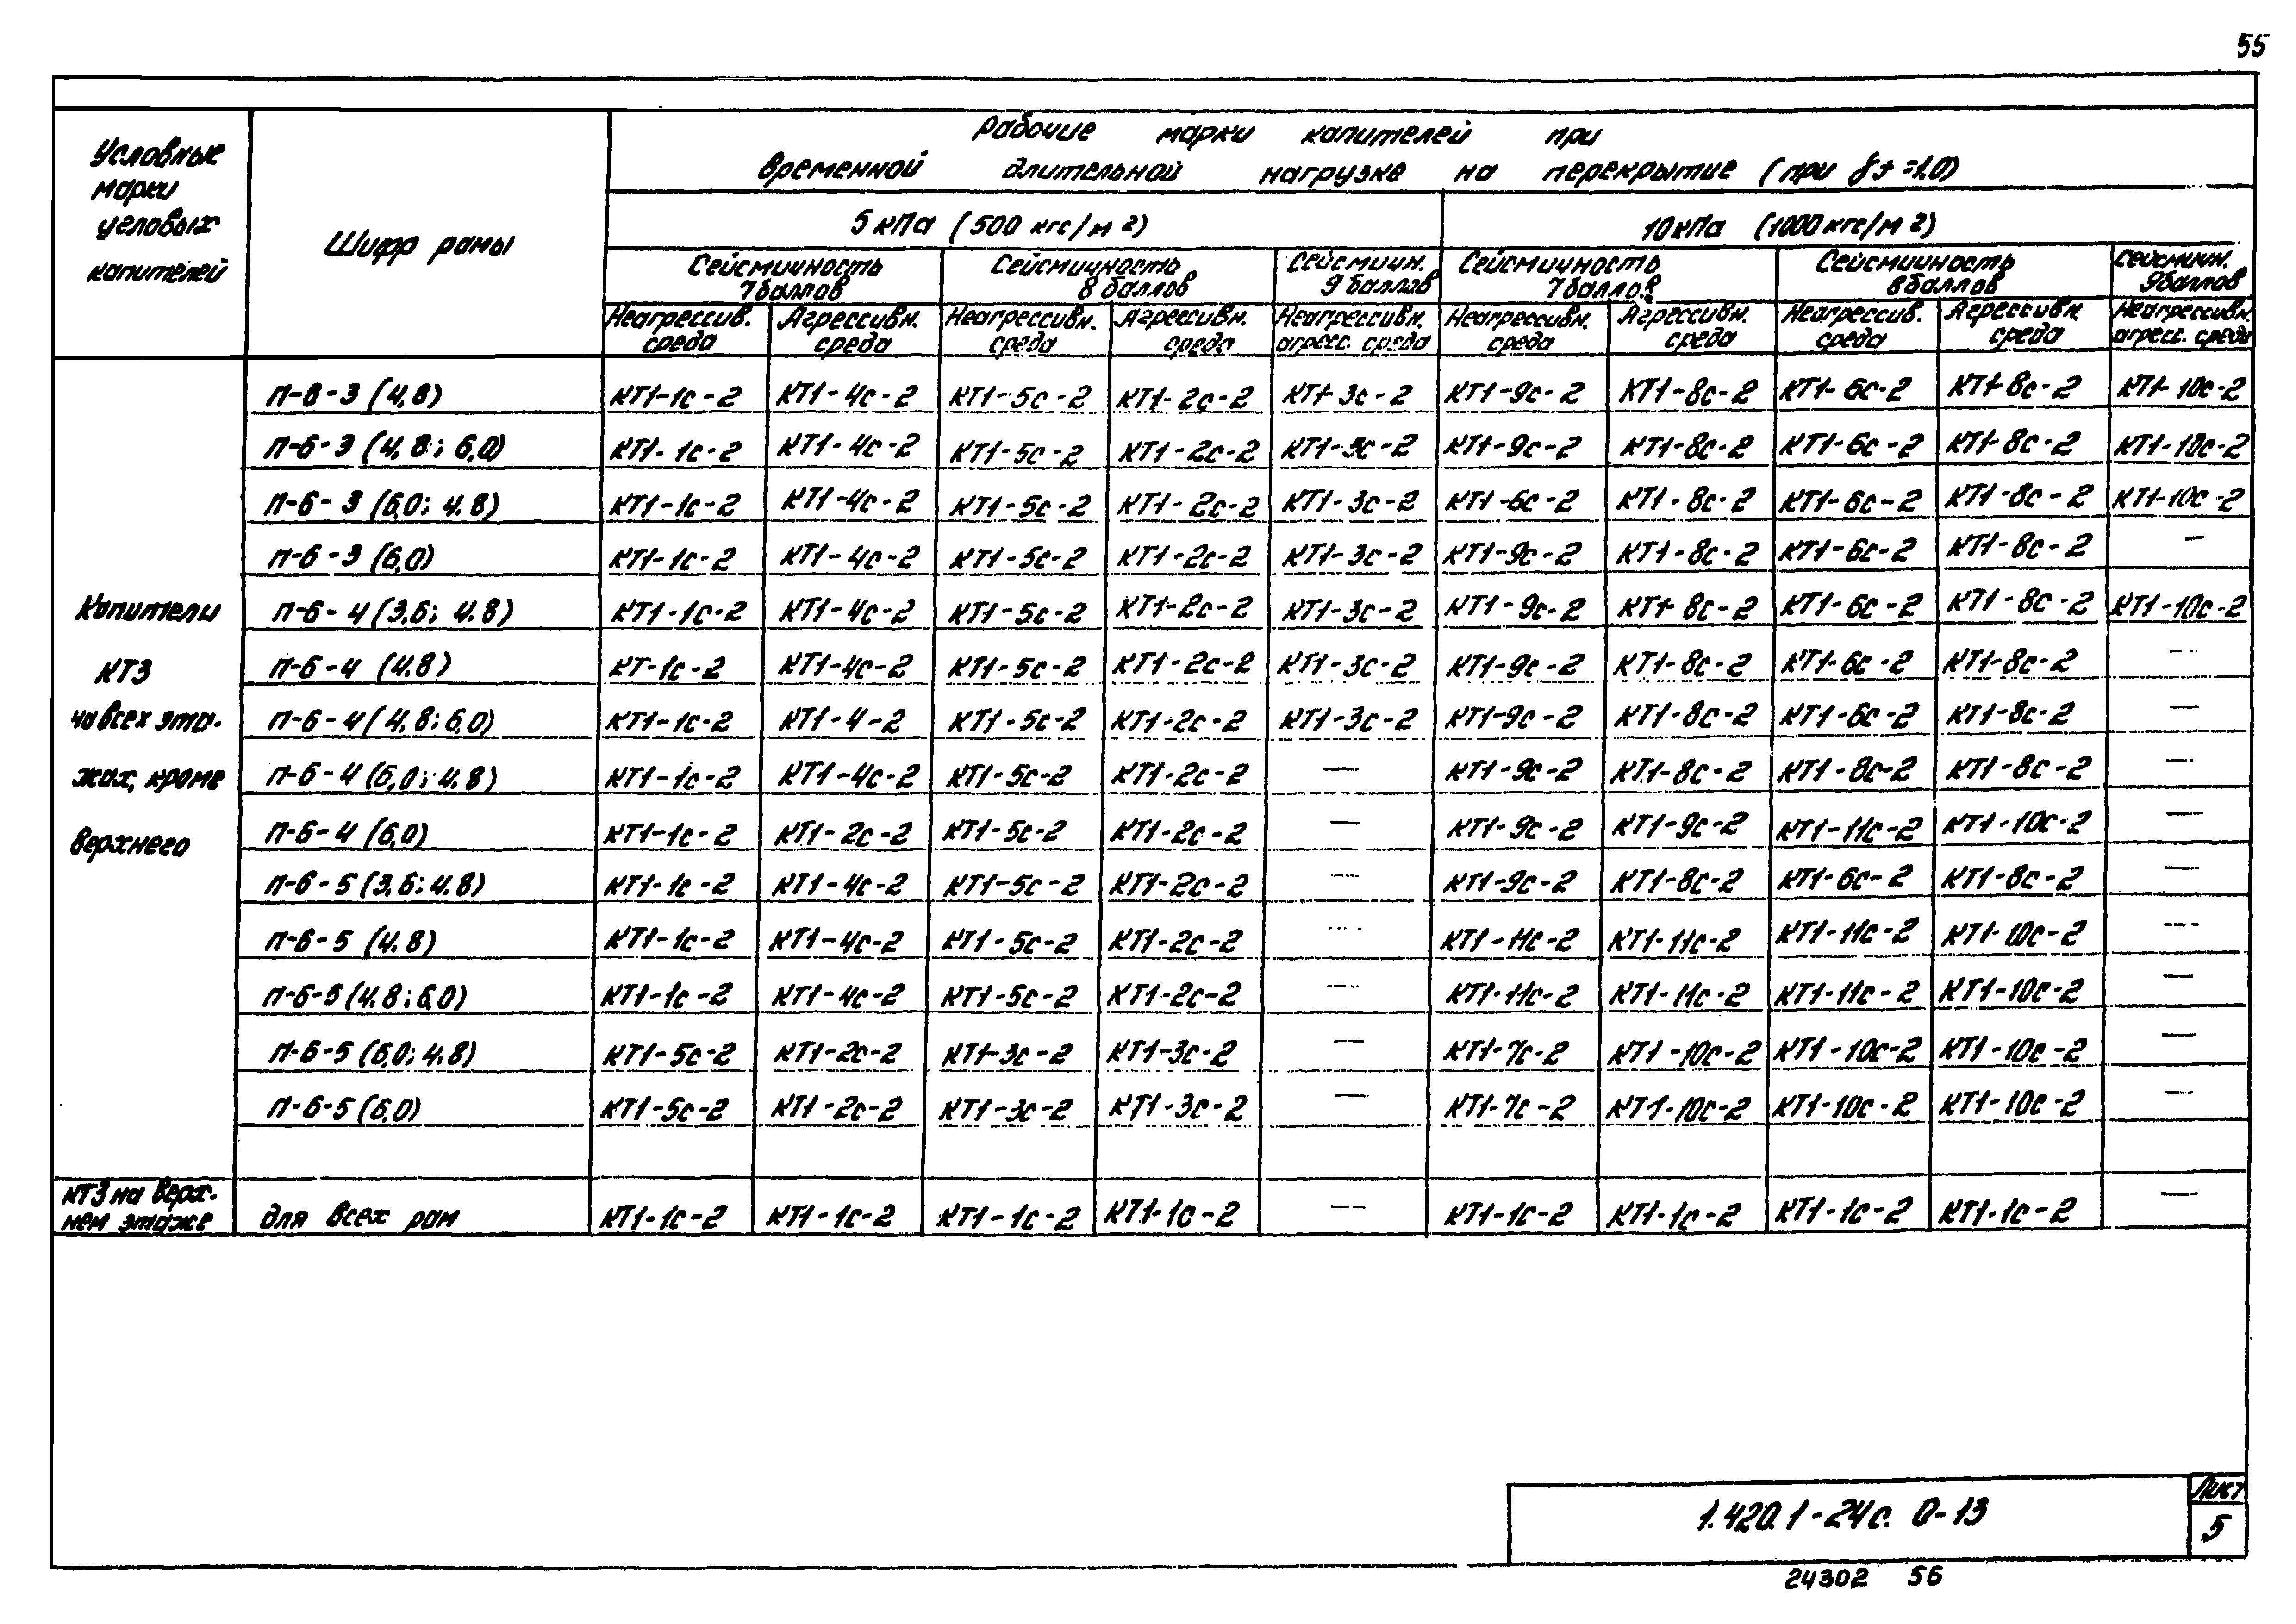 55
Рабочие марки капителей при
временной длительной нагрузке на перекрытие (при γf =1.0)
Условные
марки
угловых
капителей
Шифр рамы
5 кПа (500 кгс/м 2)
10 кПа (1000 кгс/м 2)
Сейсмичность
7 баллов
Сейсмичность
8 баллов
Сейсмичн.
9 баллов
Сейсмичность
7 баллов
Сейсмичность
8 баллов
Сейсмичн.
9 баллов
Неагрессив. среда
Агрессивн. среда
Неагрессивн. среда
Агрессивн. среда
Неагрессивн. агресс. среда
Неагрессивн. среда
Агрессивн. среда
Неагрессив. среда
Агрессивн. среда
Неагрессивн. агресс. среда
Капители
КТ3
на всех эта-
жах, кроме
верхнего
П-6-3 (4,8) КТ1-1с-2 КТ1-4с-2 КТ1-5с-2 КТ1-2с-2 КТ1-3с-2 КТ1-9с-2 КТ1-8с-2 КТ1-6с-2 КТ1-8с-2 КТ1-10с-2
П-6-3 (4,8; 6,0) КТ1-1с-2 КТ1-4с-2 КТ1-5с-2 КТ1-2с-2 КТ1-3с-2 КТ1-9с-2 КТ1-8с-2 КТ1-6с-2 КТ1-8с-2 КТ1-10с-2
П-6-3 (6,0; 4.8) КТ1-1с-2 КТ1-4с-2 КТ1-5с-2 КТ1-2с-2 КТ1-3с-2 КТ1-6с-2 КТ1-8с-2 КТ1-6с-2 КТ1-8с-2 КТ1-10с-2
П-6-3 (6,0) КТ1-1с-2 КТ1-4с-2 КТ1-5с-2 КТ1-2с-2 КТ1-3с-2 КТ1-9с-2 КТ1-8с-2 КТ1-6с-2 КТ1-8с-2 —
П-6-4 (3,6; 4.8) КТ1-1с-2 КТ1-4с-2 КТ1-5с-2 КТ1-2с-2 КТ1-3с-2 КТ1-9с-2 КТ1-8с-2 КТ1-6с-2 КТ1-8с-2 КТ1-10с-2
П-6-4 (4.8) КТ-1с-2 КТ1-4с-2 КТ1-5с-2 КТ1-2с-2 КТ1-3с-2 КТ1-9с-2 КТ1-8с-2 КТ1-6с-2 КТ1-8с-2 —
П-6-4 (4,8; 6,0) КТ1-1с-2 КТ1-4-2 КТ1-5с-2 КТ1-2с-2 КТ1-3с-2 КТ1-9с-2 КТ1-8с-2 КТ1-6с-2 КТ1-8с-2 —
П-6-4 (6,0; 4.8) КТ1-1с-2 КТ1-4с-2 КТ1-5с-2 КТ1-2с-2 — КТ1-9с-2 КТ1-8с-2 КТ1-8с-2 КТ1-8с-2 —
П-6-4 (6,0) КТ1-1с-2 КТ1-2с-2 КТ1-5с-2 КТ1-2с-2 — КТ1-9с-2 КТ1-9с-2 КТ1-11с-2 КТ1-10с-2 —
П-6-5 (3,6; 4.8) КТ1-1с-2 КТ1-4с-2 КТ1-5с-2 КТ1-2с-2 — КТ1-9с-2 КТ1-8с-2 КТ1-6с-2 КТ1-8с-2 —
П-6-5 (4.8) КТ1-1с-2 КТ1-4с-2 КТ1-5с-2 КТ1-2с-2 — КТ1-11с-2 КТ1-11с-2 КТ1-11с-2 КТ1-10с-2 —
П-6-5 (4.8; 6,0) КТ1-1с-2 КТ1-4с-2 КТ1-5с-2 КТ1-2с-2 — КТ1-11с-2 КТ1-11с-2 КТ1-11с-2 КТ1-10с-2 —
П-6-5 (6,0; 4.8) КТ1-5с-2 КТ1-2с-2 КТ1-3с-2 КТ1-3с-2 — КТ1-7с-2 КТ1-10с-2 КТ1-10с-2 КТ1-10с-2 —
П-6-5 (6,0) КТ1-5с-2 КТ1-2с-2 КТ1-3с-2 КТ1-3с-2 — КТ1-7с-2 КТ1-10с-2 КТ1-10с-2 КТ1-10с-2 —
КТ3 на верх-
нем этаже
для всех рам КТ1-1с-2 КТ1-1с-2 КТ1-1с-2 КТ1-1с-2 — КТ1-1с-2 КТ1-1с-2 КТ1-1с-2 КТ1-1с-2 —
1.420.1-24с. 0-13
Лист
5
24302 56